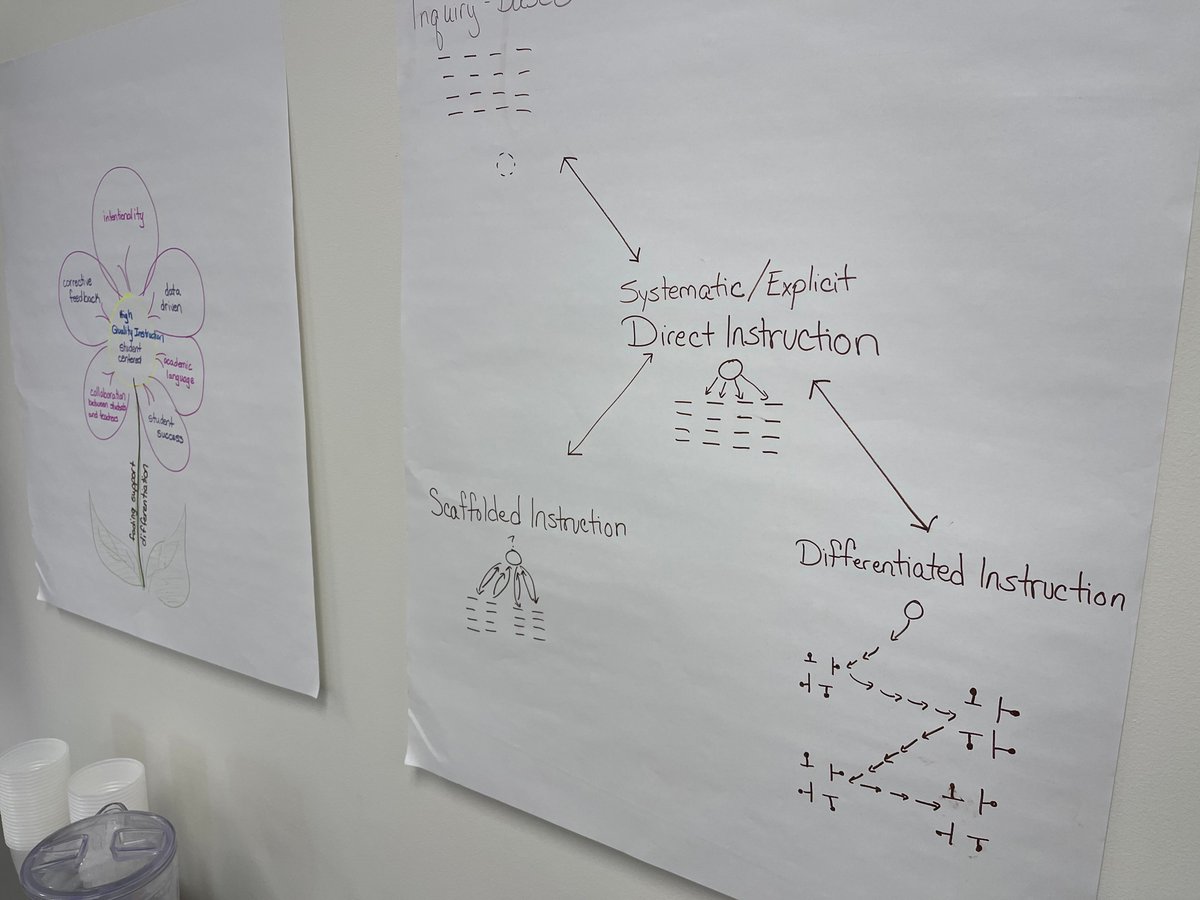 intentionality
corrective
feedback
data
driven
High
Quality Instruction
student
centered
academic
language
collaboration
between students
and teachers
student
success
fading support
differentiation
Inquiry-Based
Systematic/Explicit
Direct Instruction
Scaffolded Instruction
?
Differentiated Instruction